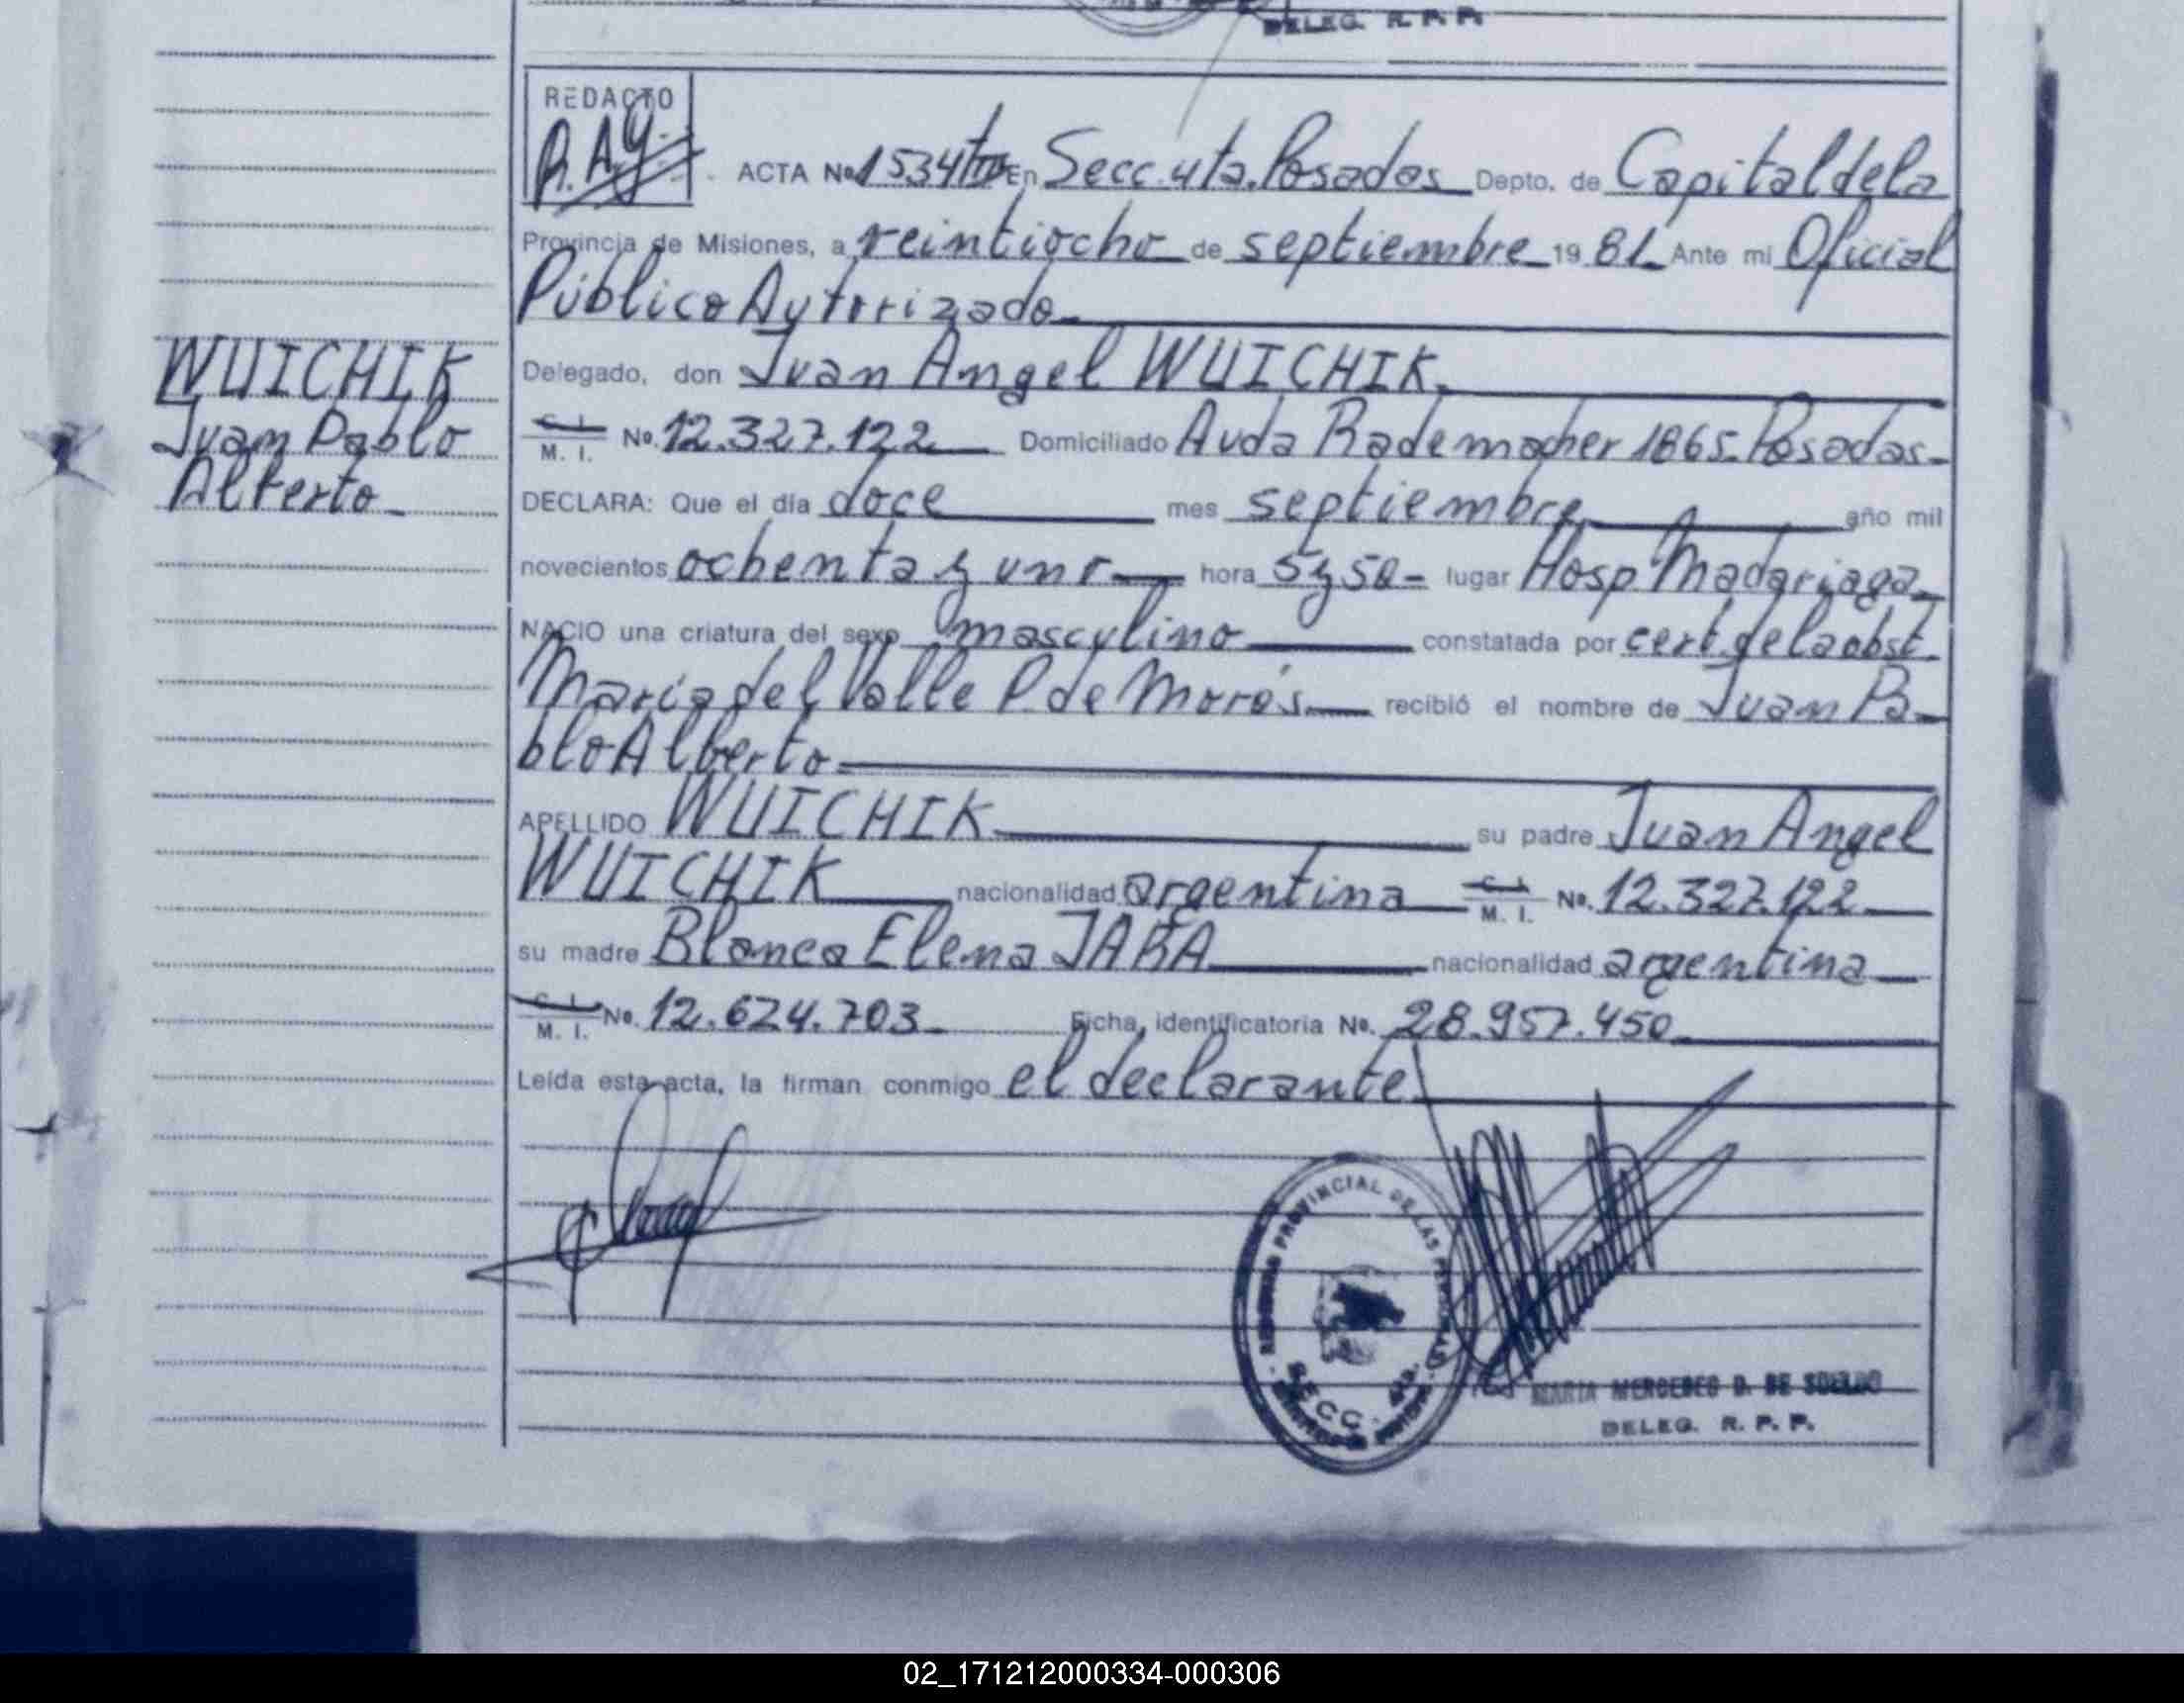 DELEG. R. P. P.
REDACTO
R.A.G.
ACTA No 1534 En Secc. 4ta. Posadas Depto. de Capital de la
Provincia de Misiones, a veintiocho de septiembre 19 81 Ante mi Oficial
Público Autorizado
Delegado, don Juan Angel WUICHIK.
C. I.
M. I. No. 12.327.122 Domiciliado Avda Rademacher 1865. Posadas.
DECLARA: Que el día doce mes septiembre año mil
novecientos ochenta y uno hora 5y50 lugar Hosp Madariaga
NACIO una criatura del sexo masculino constatada por cert. de la obst.
Maria del Valle P. de Morós recibió el nombre de Juan Pa-
blo Alberto
APELLIDO WUICHIK su padre Juan Angel
WUICHIK nacionalidad argentina C. I. M. I. No. 12.327.122
su madre Blanca Elena JARA nacionalidad argentina
C. I.
M. I. No. 12.624.703 Ficha identificatoria No. 28.957.450
Leída esta acta, la firman conmigo el declarante.
WUICHIK
Juan Pablo
Alberto
PROVINCIAL DE LAS PERSONAS
SECC. 4ta.
MARIA MERCEDES D. DE
DELEG. R. P. P.
02_171212000334-000306